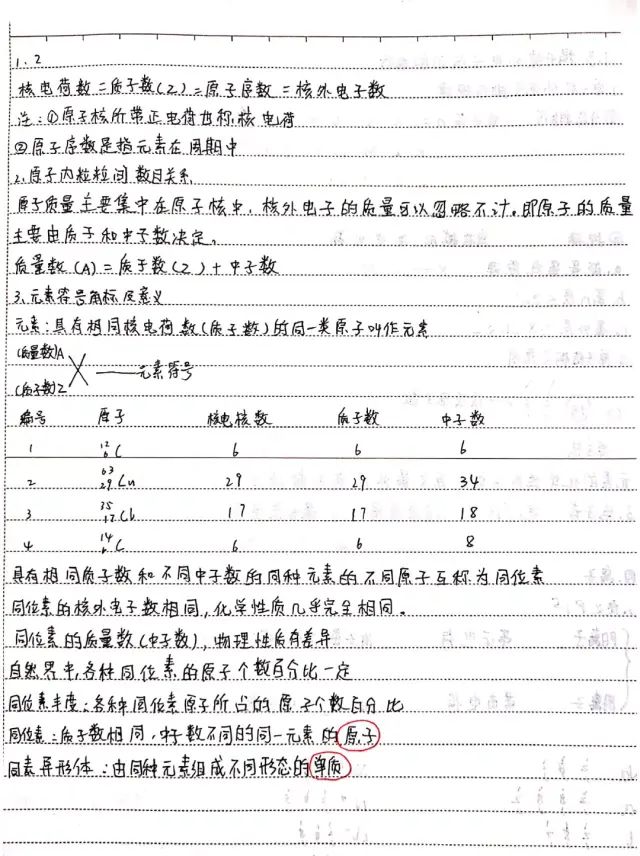 1.2
核电荷数=质子数(Z)=原子序数=核外电子数
注:①原子核所带正电荷也称核电荷
②原子序数是指元素在周期中
2.原子内粒粒间数目关系
原子质量主要集中在原子核中,核外电子的质量可以忽略不计。即原子的质量
主要由质子和中子数决定。
质量数(A)=质子数(Z)+中子数
3.元素符号角标及意义
元素:具有相同核电荷数(质子数)的同一类原子叫作元素
(质量数)A
X ——元素符号
(质子数)Z
编号 原子 核电核数 质子数 中子数
1 12 6 C 6 6 6
2 63 29 Cu 29 29 34
3 35 17 Cl 17 17 18
4 14 6 C 6 6 8
具有相同质子数和不同中子数的同种元素的不同原子互称为同位素
同位素的核外电子数相同,化学性质几乎完全相同。
同位素的质量数(中子数),物理性质有差异
自然界中,各种同位素的原子个数百分比一定
同位素丰度:各种同位素原子所占的原子个数百分比
同位素:质子数相同,中子数不同的同一元素的原子
同素异形体:由同种元素组成不同形态的单质